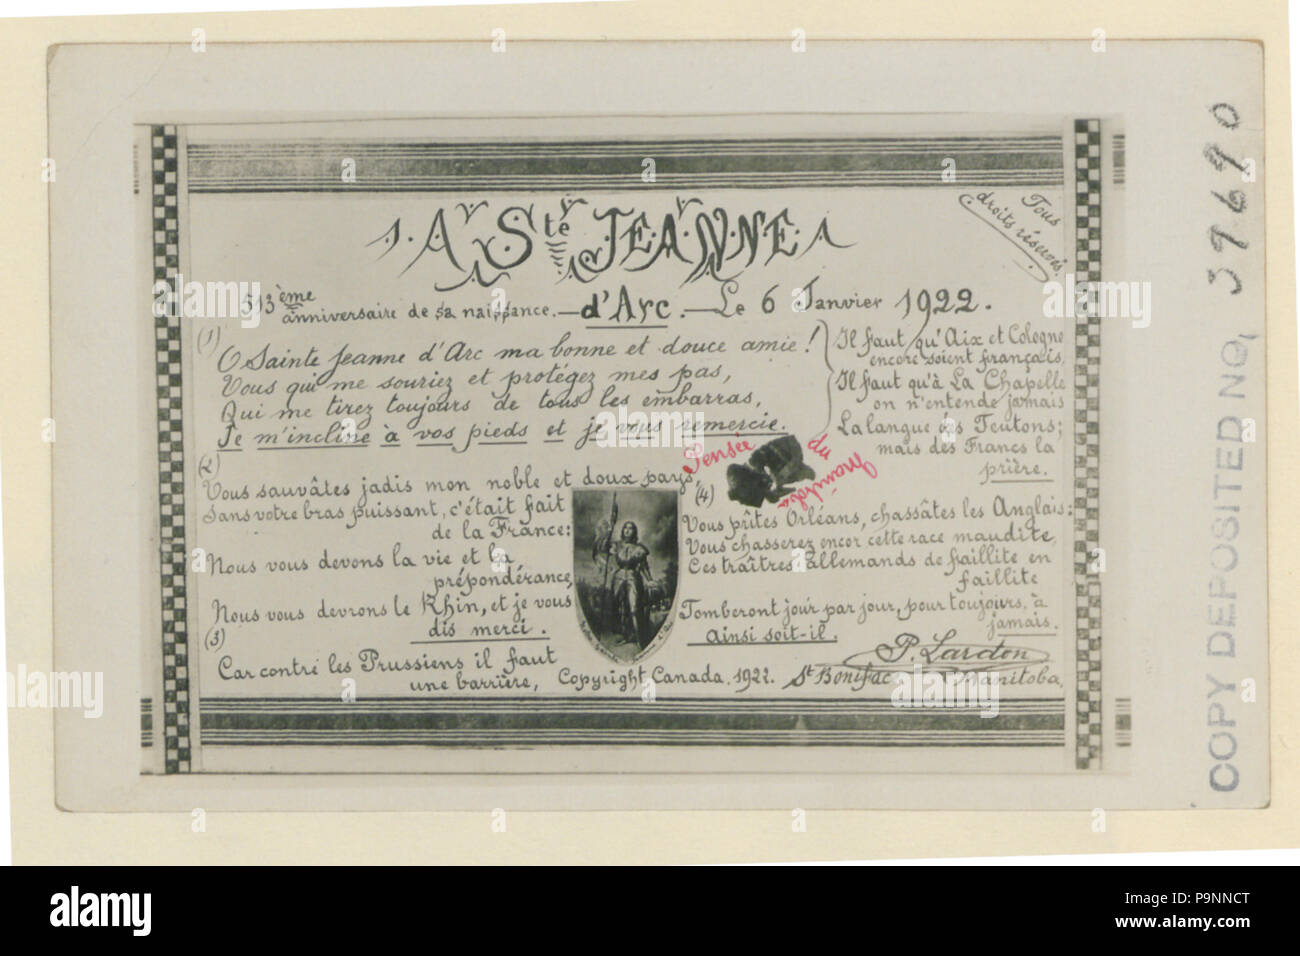 A Ste JEANNE
Tous
droits réservés.
513ème
anniversaire de sa naissance. — d'Arc. — Le 6 Janvier 1922.
(1)
O Sainte Jeanne d'Arc ma bonne et douce amie!
Vous qui me souriez et protégez mes pas,
Qui me tirez toujours de tous les embarras,
Je m'incline à vos pieds et je vous remercie.
(2)
Vous sauvâtes jadis mon noble et doux pays,
Sans votre bras puissant, c'était fait
de la France:
Nous vous devons la vie et la
prépondérance,
Nous vous devrons le Rhin, et je vous
dis merci.
(3)
Car contre les Prussiens il faut
une barrière,
Il faut qu'Aix et Cologne
encore soient français,
Il faut qu'à La Chapelle
on n'entende jamais
La langue des Teutons;
mais des Francs la
prière.
Pensée du Manitoba
(4)
Vous prîtes Orléans, chassâtes les Anglais:
Vous chasserez encor cette race maudite,
Ces traîtres allemands de faillite en
faillite
Tomberont jour par jour, pour toujours, à
jamais.
Ainsi soit-il.
P. Lardon
Copyright Canada, 1922. St Boniface Manitoba.
COPY DEPOSITED NO. 39690
alamy
P9NNCT
www.alamy.com